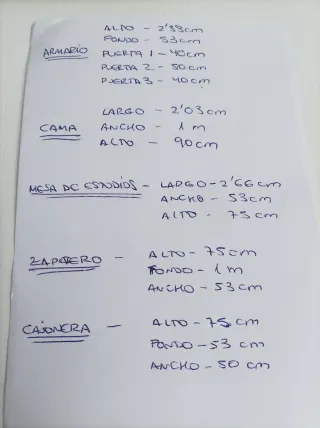 ALTO - 2'33cm
FONDO - 53cm
ARMARIO PUERTA 1 - 40cm
PUERTA 2 - 50cm
PUERTA 3 - 40cm
LARGO - 2'03cm
CAMA ANCHO - 1 m
ALTO - 90cm
MESA DE ESTUDIOS - LARGO - 2'66cm
ANCHO - 53cm
ALTO - 75cm
ZAPATERO - ALTO - 75cm
FONDO - 1m
ANCHO - 53cm
CAJONERA - ALTO - 75cm
FONDO - 53 cm
ANCHO - 50 cm